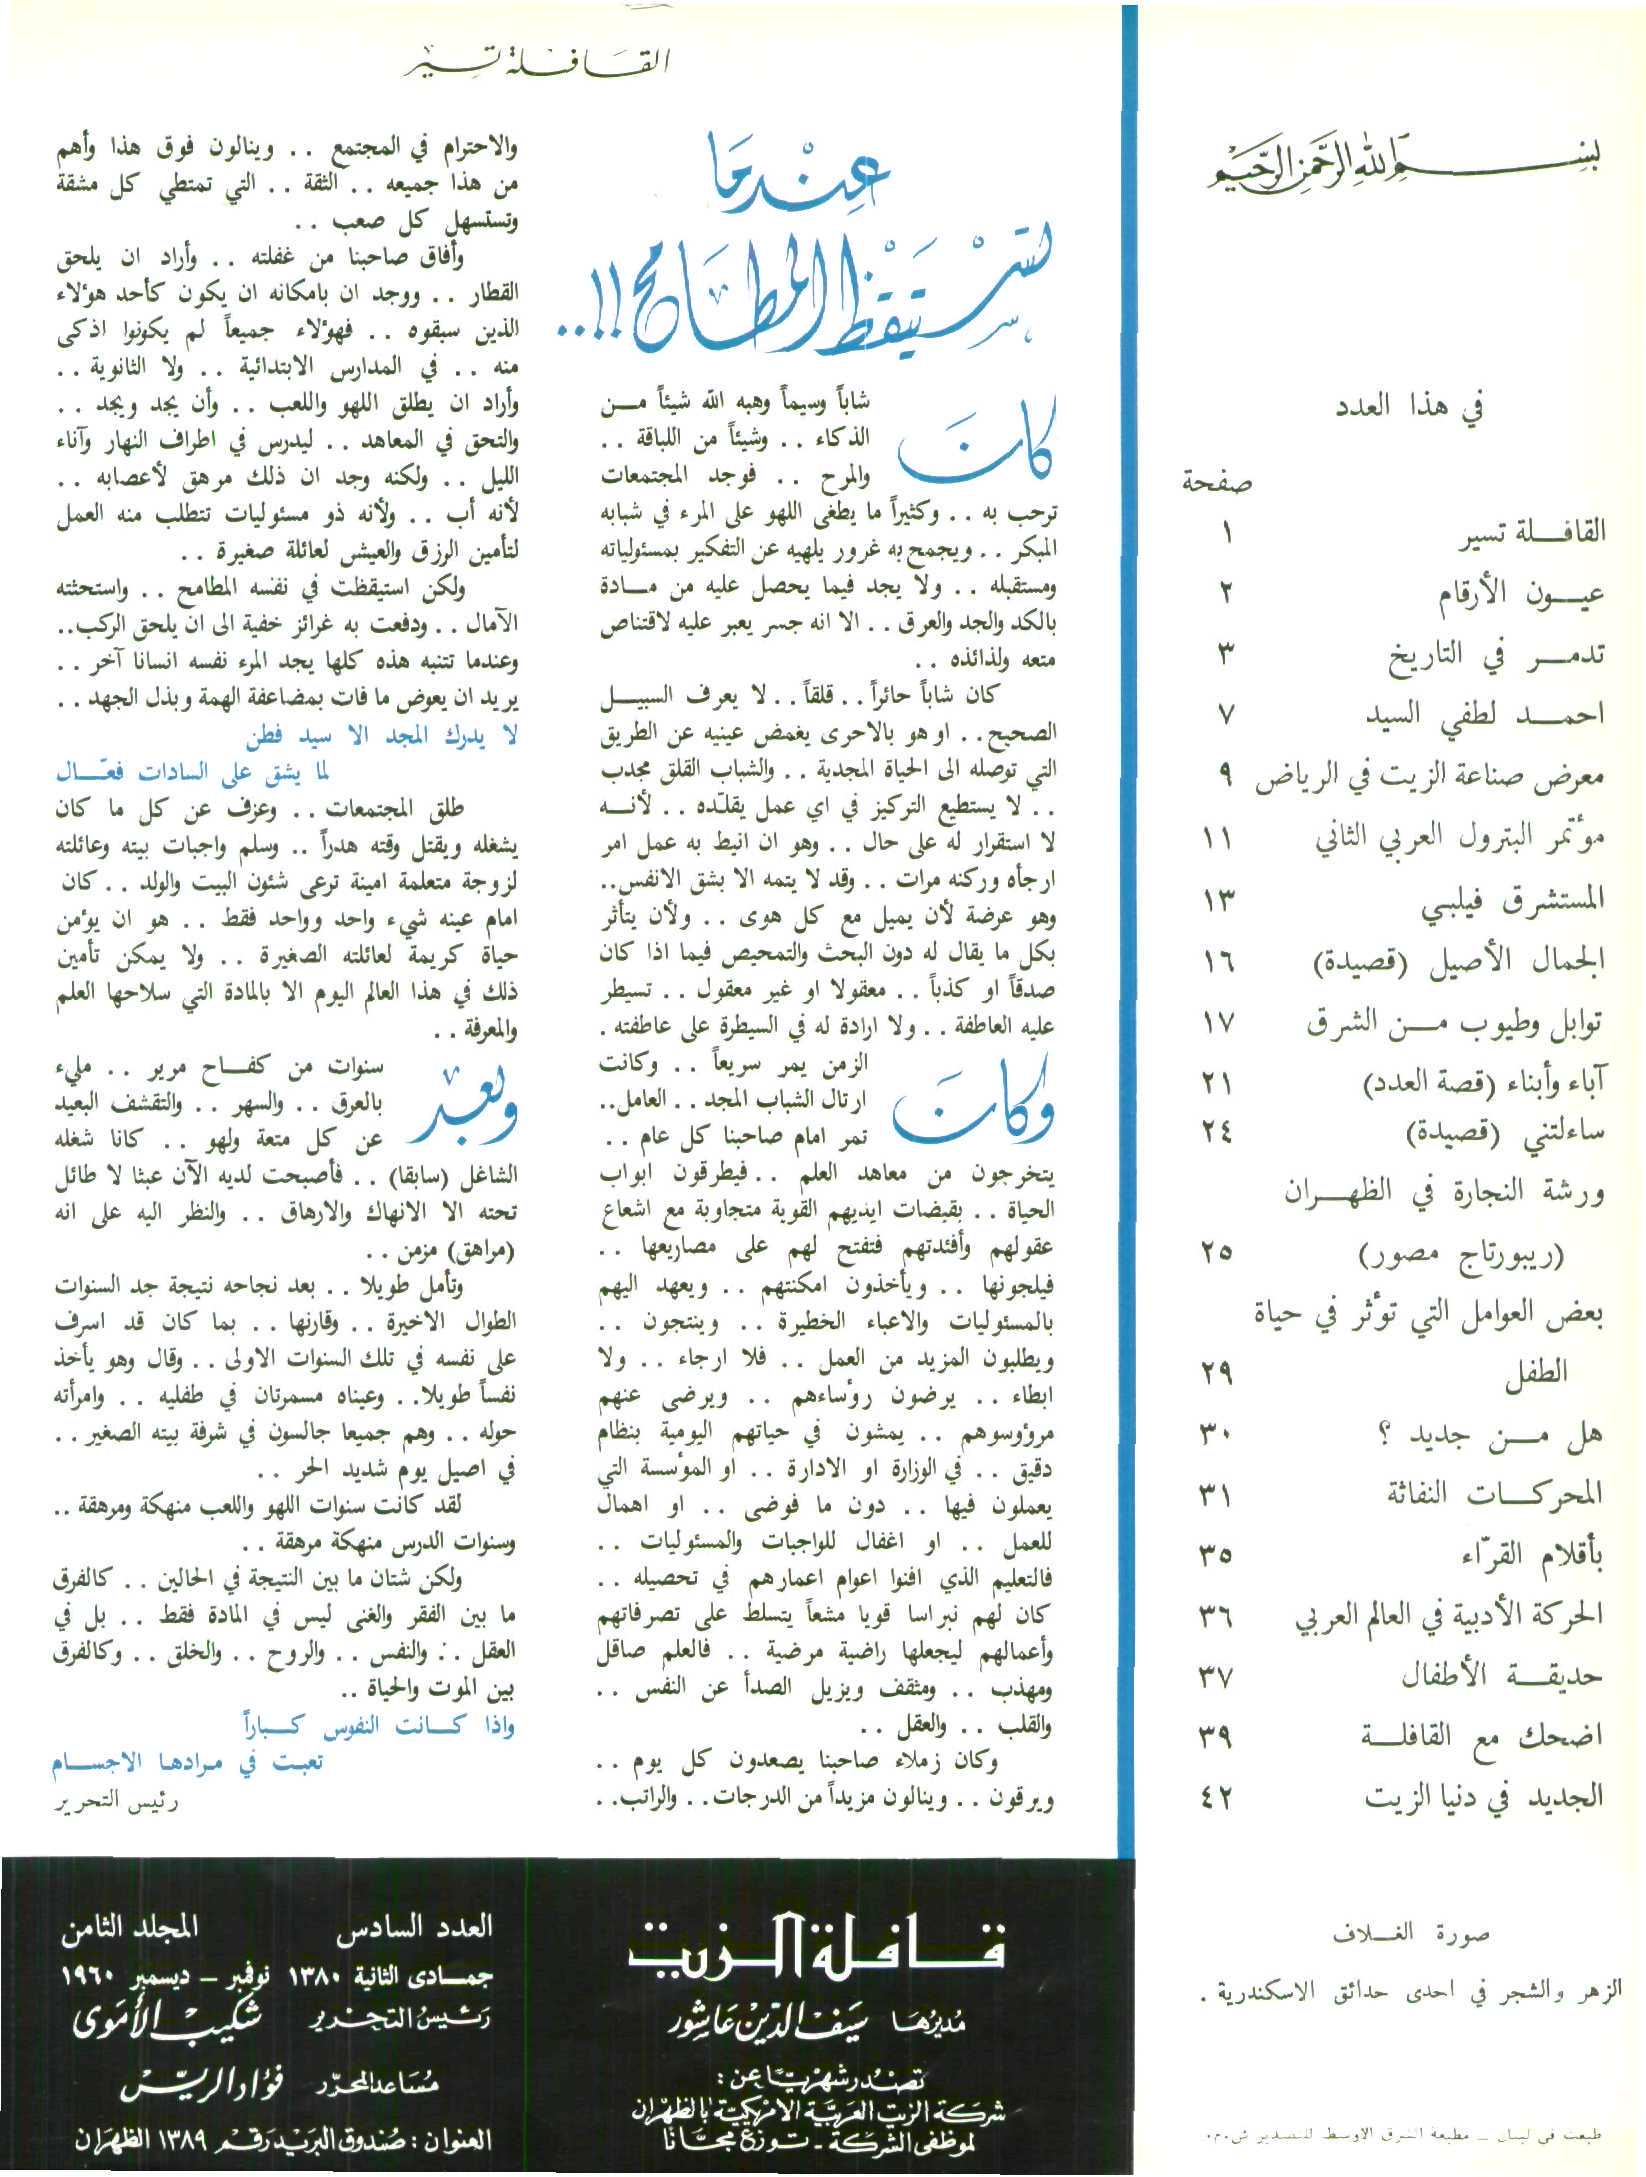 القافلة تسير
بسم الله الرحمن الرحيم
في هذا العدد
صفحة
القافلة تسير ١
عيون الأرقام ٢
تدمر في التاريخ ٣
احمد لطفي السيد ٧
معرض صناعة الزيت في الرياض ٩
مؤتمر البترول العربي الثاني ١١
المستشرق فيلبي ١٣
الجمال الأصيل (قصيدة) ١٦
توابل وطيوب من الشرق ١٧
آباء وأبناء (قصة العدد) ٢١
ساءلتني (قصيدة) ٢٤
ورشة النجارة في الظهران
(ريبورتاج مصور) ٢٥
بعض العوامل التي تؤثر في حياة
الطفل ٢٩
هل من جديد ؟ ٣٠
المحركات النفاثة ٣١
بأقلام القرّاء ٣٥
الحركة الأدبية في العالم العربي ٣٦
حديقة الأطفال ٣٧
اضحك مع القافلة ٣٩
الجديد في دنيا الزيت ٤٢
صورة الغلاف
الزهر والشجر في احدى حدائق الاسكندرية .
طبعت في لبنان – مطبعة الشرق الاوسط للتصدير ش.م.م.
عندما
تستيقظ المطامح !! ..
كان شاباً وسيماً وهبه الله شيئاً من
الذكاء .. وشيئاً من اللباقة ..
والمرح .. فوجد المجتمعات
ترحب به .. وكثيراً ما يطغى اللهو على المرء في شبابه
المبكر .. ويجمح به غرور يلهيه عن التفكير بمسئولياته
ومستقبله .. ولا يجد فيما يحصل عليه من مادة
بالكد والجد والعرق .. الا انه جسر يعبر عليه لاقتناص
متعه ولذائذه ..
كان شاباً حائراً .. قلقاً .. لا يعرف السبيل
الصحيح .. او هو بالاحرى يغمض عينيه عن الطريق
التي توصله الى الحياة المجدية .. والشباب القلق مجدب
.. لا يستطيع التركيز في اي عمل يقلّده .. لأنه
لا استقرار له على حال .. وهو ان انيط به عمل امر
ارجأه وركنه مرات .. وقد لا يتمه الا بشق الانفس ..
وهو عرضة لأن يميل مع كل هوى .. ولأن يتأثر
بكل ما يقال له دون البحث والتمحيص فيما اذا كان
صدقاً او كذباً .. معقولا او غير معقول .. تسيطر
عليه العاطفة .. ولا ارادة له في السيطرة على عاطفته .
وكان الزمن يمر سريعاً .. وكانت
ارتال الشباب المجد .. العامل ..
تمر امام صاحبنا كل عام ..
يتخرجون من معاهد العلم .. فيطرقون ابواب
الحياة .. بقبضات ايديهم القوية متجاوبة مع اشعاع
عقولهم وأفئدتهم فتفتح لهم على مصاريعها ..
فيلجونها .. ويأخذون امكنتهم .. ويعهد اليهم
بالمسئوليات والاعباء الخطيرة .. وينتجون ..
ويطلبون المزيد من العمل .. فلا ارجاء .. ولا
ابطاء .. يرضون رؤساءهم .. ويرضى عنهم
مرؤوسوهم .. يمشون في حياتهم اليومية بنظام
دقيق .. في الوزارة او الادارة .. او المؤسسة التي
يعملون فيها .. دون ما فوضى .. او اهمال
للعمل .. او اغفال للواجبات والمسئوليات ..
فالتعليم الذي افنوا اعوام اعمارهم في تحصيله ..
كان لهم نبراسا قويا مشعاً يتسلط على تصرفاتهم
وأعمالهم ليجعلها راضية مرضية .. فالعلم صاقل
ومهذب .. ومثقف ويزيل الصدأ عن النفس ..
والقلب .. والعقل ..
وكان زملاء صاحبنا يصعدون كل يوم ..
ويرقون .. وينالون مزيداً من الدرجات .. والراتب ..
والاحترام في المجتمع .. وينالون فوق هذا وأهم
من هذا جميعه .. الثقة .. التي تمتطي كل مشقة
وتستسهل كل صعب ..
وأفاق صاحبنا من غفلته .. وأراد ان يلحق
القطار .. ووجد ان بامكانه ان يكون كأحد هؤلاء
الذين سبقوه .. فهؤلاء جميعاً لم يكونوا اذكى
منه .. في المدارس الابتدائية .. ولا الثانوية ..
وأراد ان يطلق اللهو واللعب .. وأن يجد ويجد ..
والتحق في المعاهد .. ليدرس في اطراف النهار وآناء
الليل .. ولكنه وجد ان ذلك مرهق لأعصابه ..
لأنه أب .. ولأنه ذو مسئوليات تتطلب منه العمل
لتأمين الرزق والعيش لعائلة صغيرة ..
ولكن استيقظت في نفسه المطامح .. واستحثته
الآمال .. ودفعت به غرائز خفية الى ان يلحق الركب ..
وعندما تتنبه هذه كلها يجد المرء نفسه انسانا آخر ..
يريد ان يعوض ما فات بمضاعفة الهمة وبذل الجهد ..
لا يدرك المجد الا سيد فطن
لما يشق على السادات فعّال
طلق المجتمعات .. وعزف عن كل ما كان
يشغله ويقتل وقته هدراً .. وسلم واجبات بيته وعائلته
لزوجة متعلمة امينة ترعى شئون البيت والولد .. كان
امام عينه شيء واحد وواحد فقط .. هو ان يؤمن
حياة كريمة لعائلته الصغيرة .. ولا يمكن تأمين
ذلك في هذا العالم اليوم الا بالمادة التي سلاحها العلم
والمعرفة ..
وبعد سنوات من كفاح مرير .. مليء
بالعرق .. والسهر .. والتقشف البعيد
عن كل متعة ولهو .. كانا شغله
الشاغل (سابقا) .. فأصبحت لديه الآن عبثا لا طائل
تحته الا الانهاك والارهاق .. والنظر اليه على انه
(مراهق) مزمن ..
وتأمل طويلا .. بعد نجاحه نتيجة جد السنوات
الطوال الاخيرة .. وقارنها .. بما كان قد اسرف
على نفسه في تلك السنوات الاولى .. وقال وهو يأخذ
نفساً طويلا .. وعيناه مسمرتان في طفليه .. وامرأته
حوله .. وهم جميعا جالسون في شرفة بيته الصغير ..
في اصيل يوم شديد الحر ..
لقد كانت سنوات اللهو واللعب منهكة ومرهقة ..
وسنوات الدرس منهكة مرهقة ..
ولكن شتان ما بين النتيجة في الحالين .. كالفرق
ما بين الفقر والغنى ليس في المادة فقط .. بل في
العقل .. والنفس .. والروح .. والخلق .. وكالفرق
بين الموت والحياة ..
واذا كانت النفوس كباراً
تعبت في مرادها الاجسام
رئيس التحرير
قافلة الزيت
مديرها سيف الدين عاشور
تصدر شهريًا عن :
شركة الزيت العربية الامريكية بالظهران
لموظفي الشركة - توزع مجانًا
العدد السادس المجلد الثامن
جمادى الثانية ١٣٨٠ نوفمبر – ديسمبر ١٩٦٠
رئيس التحرير شكيب الأموي
مساعد المحرر فؤاد الريس
العنوان : صندوق البريد رقم ١٣٨٩ الظهران